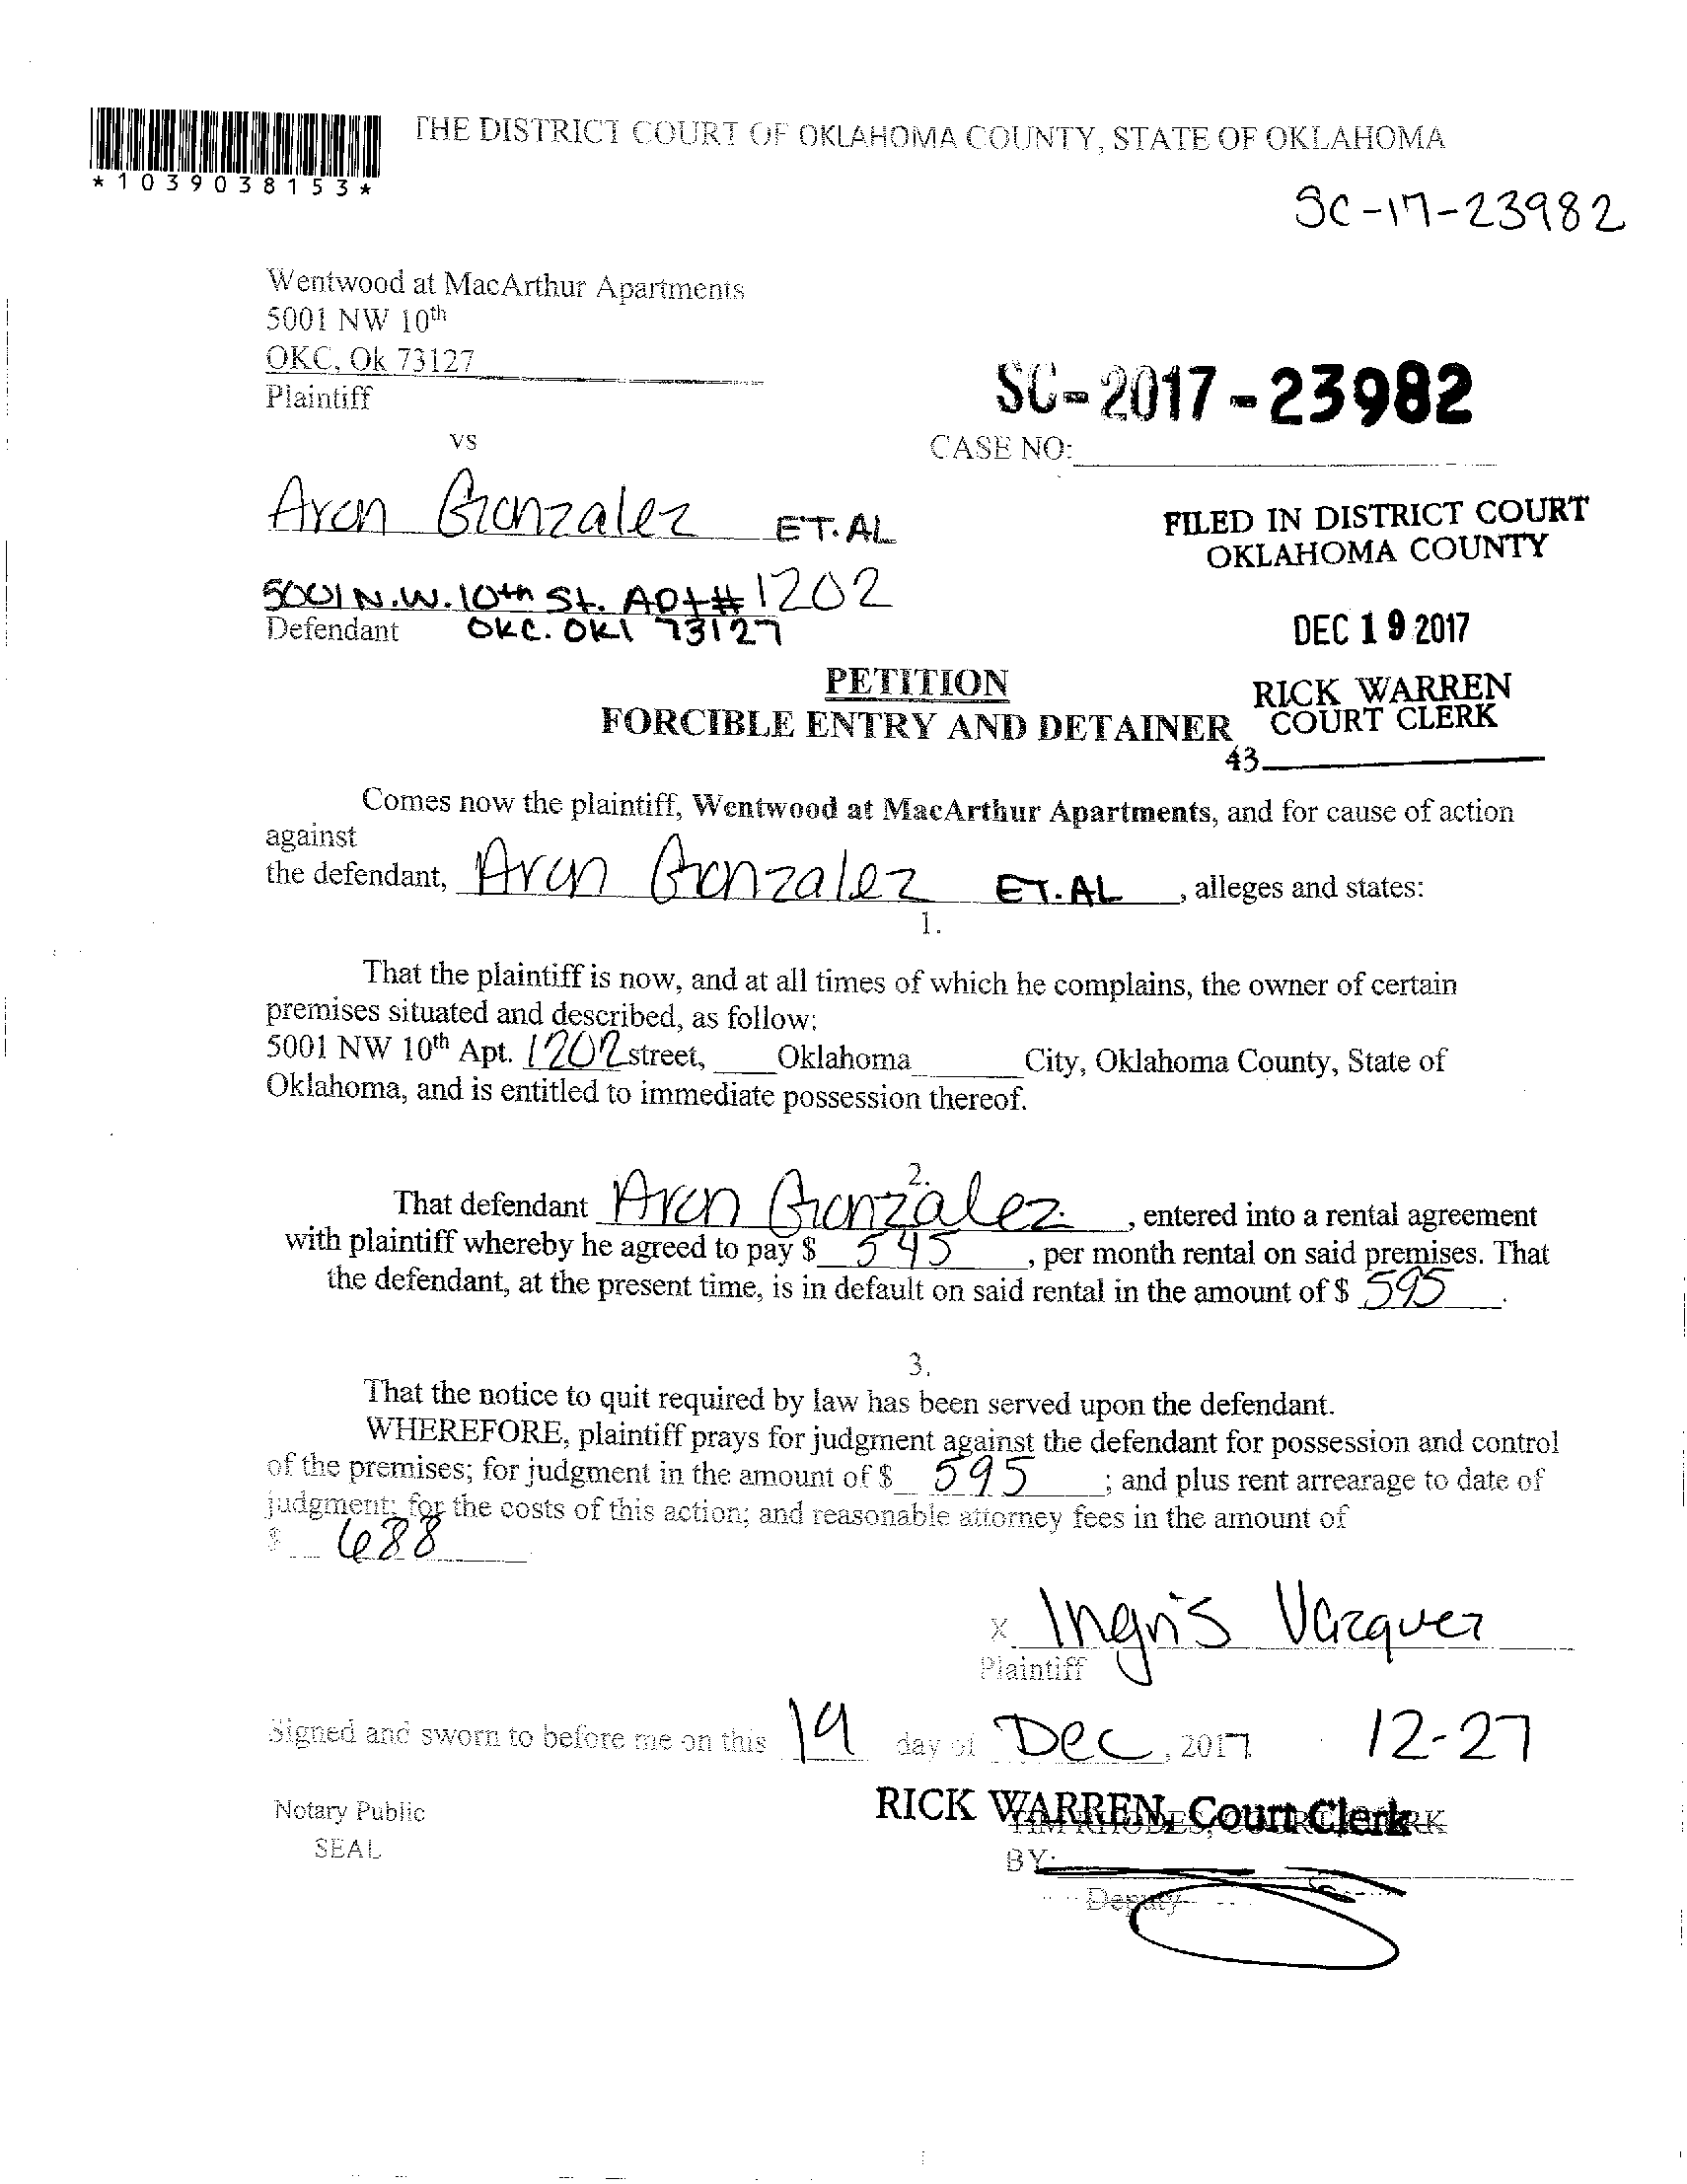 THE DISTRICT COURT OF OKLAHOMA COUNTY, STATE OF OKLAHOMA
*1039038153*
SC-17-23982
Wentwood at MacArthur Apartments
5001 NW 10th
OKC, Ok 73127
Plaintiff
SC-2017-23982
vs
CASE NO:
Aron Gonzalez ET.AL
FILED IN DISTRICT COURT
OKLAHOMA COUNTY
5001 N.W. 10th St. Apt# 1202
Defendant OKC. OKl 73127
DEC 19 2017
PETITION
RICK WARREN
FORCIBLE ENTRY AND DETAINER
COURT CLERK
43
Comes now the plaintiff, Wentwood at MacArthur Apartments, and for cause of action
against
the defendant, Aron Gonzalez ET.AL, alleges and states:
1.
That the plaintiff is now, and at all times of which he complains, the owner of certain
premises situated and described, as follow:
5001 NW 10th Apt. 1202 street, Oklahoma City, Oklahoma County, State of
Oklahoma, and is entitled to immediate possession thereof.
2.
That defendant Aron Gonzalez, entered into a rental agreement
with plaintiff whereby he agreed to pay $ 545, per month rental on said premises. That
the defendant, at the present time, is in default on said rental in the amount of $ 595.
3.
That the notice to quit required by law has been served upon the defendant.
WHEREFORE, plaintiff prays for judgment against the defendant for possession and control
of the premises; for judgment in the amount of $ 595; and plus rent arrearage to date of
judgment; for the costs of this action; and reasonable attorney fees in the amount of
$ 688
x Ingris Vazquez
Plaintiff
Signed and sworn to before me on this 19 day of Dec, 2017 12-27
Notary Public
RICK WARREN, Court Clerk
TIM RHODES, COURT CLERK
SEAL
BY:
Deputy